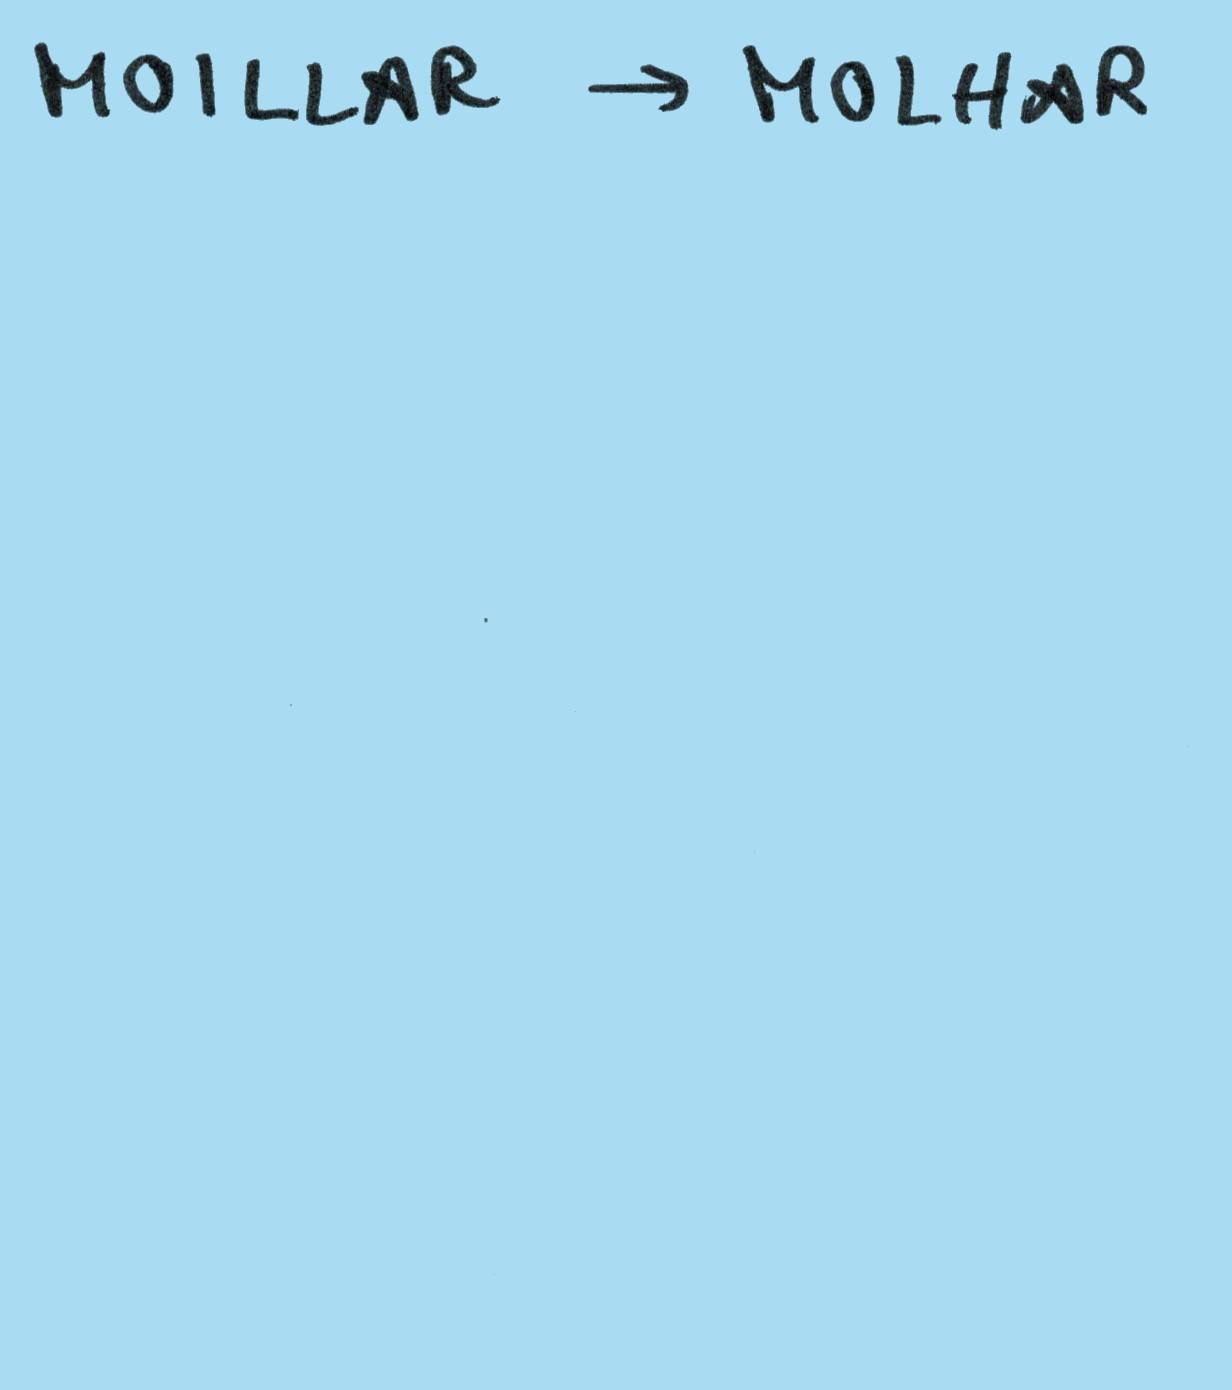 MOILLAR → MOLHAR